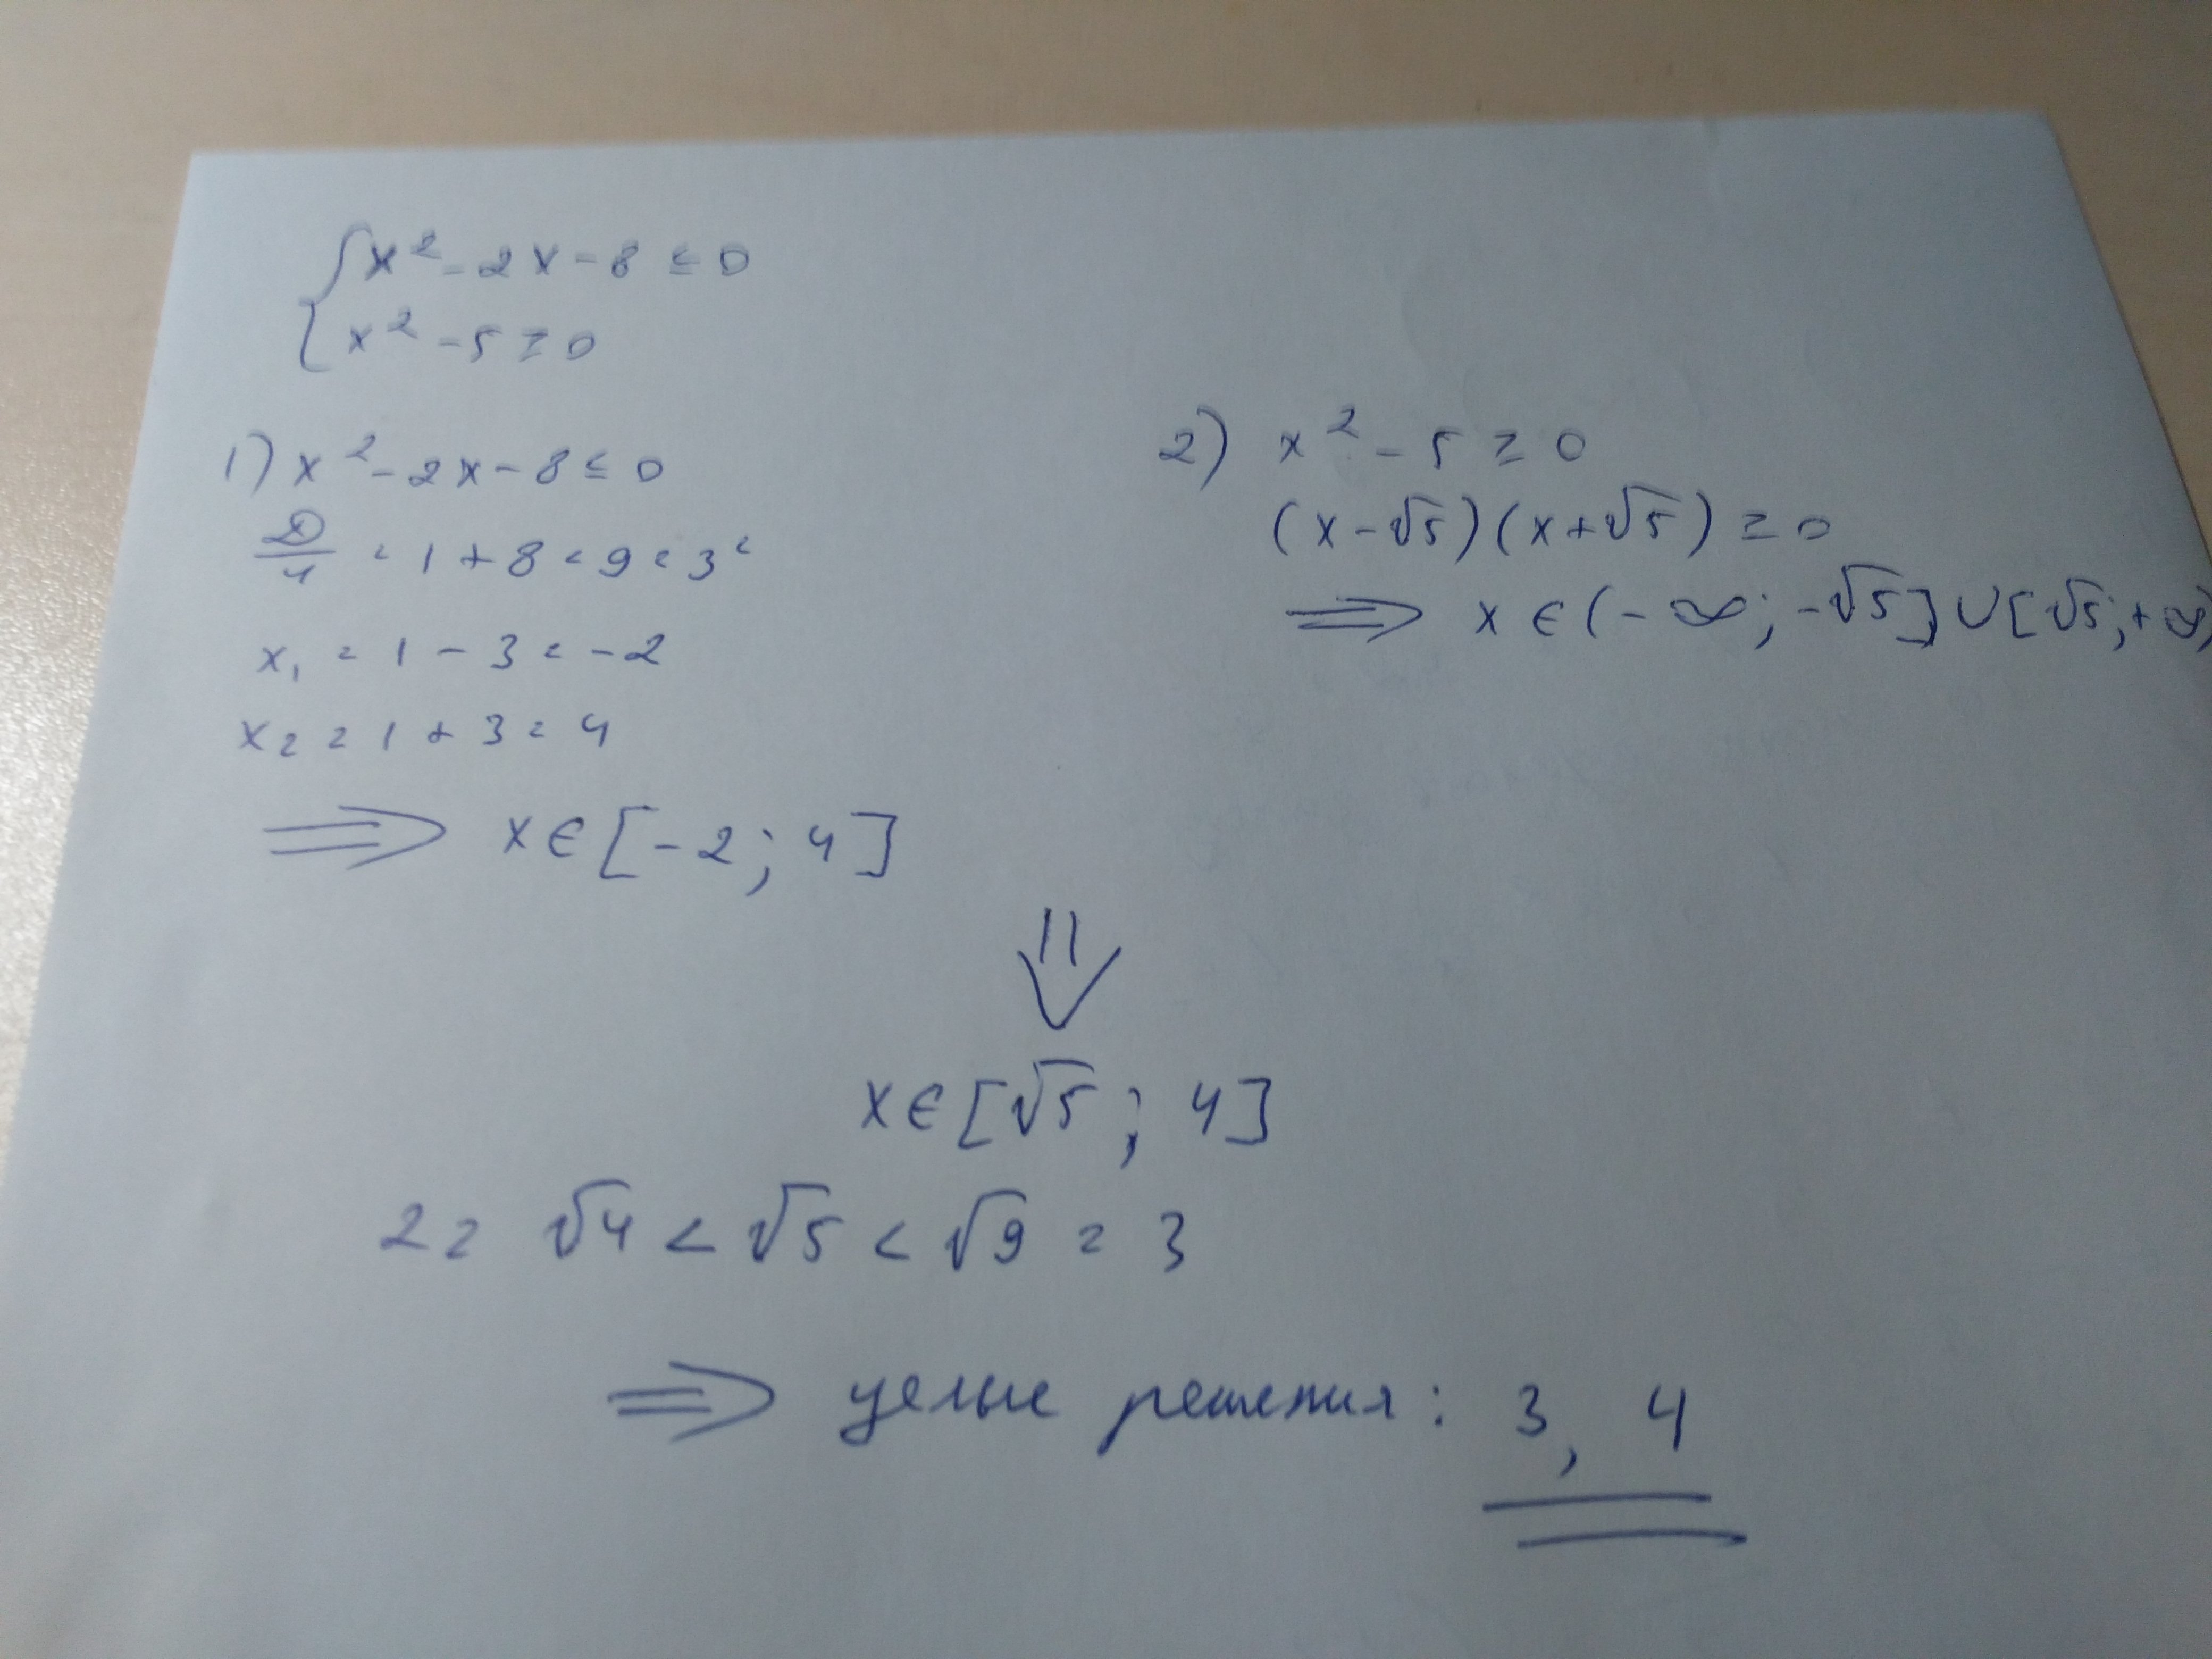 { x² - 2x - 8 ≤ 0
x² - 5 ≥ 0
1) x² - 2x - 8 ≤ 0
D/4 = 1 + 8 = 9 = 3²
x₁ = 1 - 3 = -2
x₂ = 1 + 3 = 4
⟹ x ∈ [-2; 4]
2) x² - 5 ≥ 0
(x - √5)(x + √5) ≥ 0
⟹ x ∈ (-∞; -√5] ∪ [√5; +∞)
⇓
x ∈ [√5; 4]
2 = √4 < √5 < √9 = 3
⟹ целые решения: 3, 4